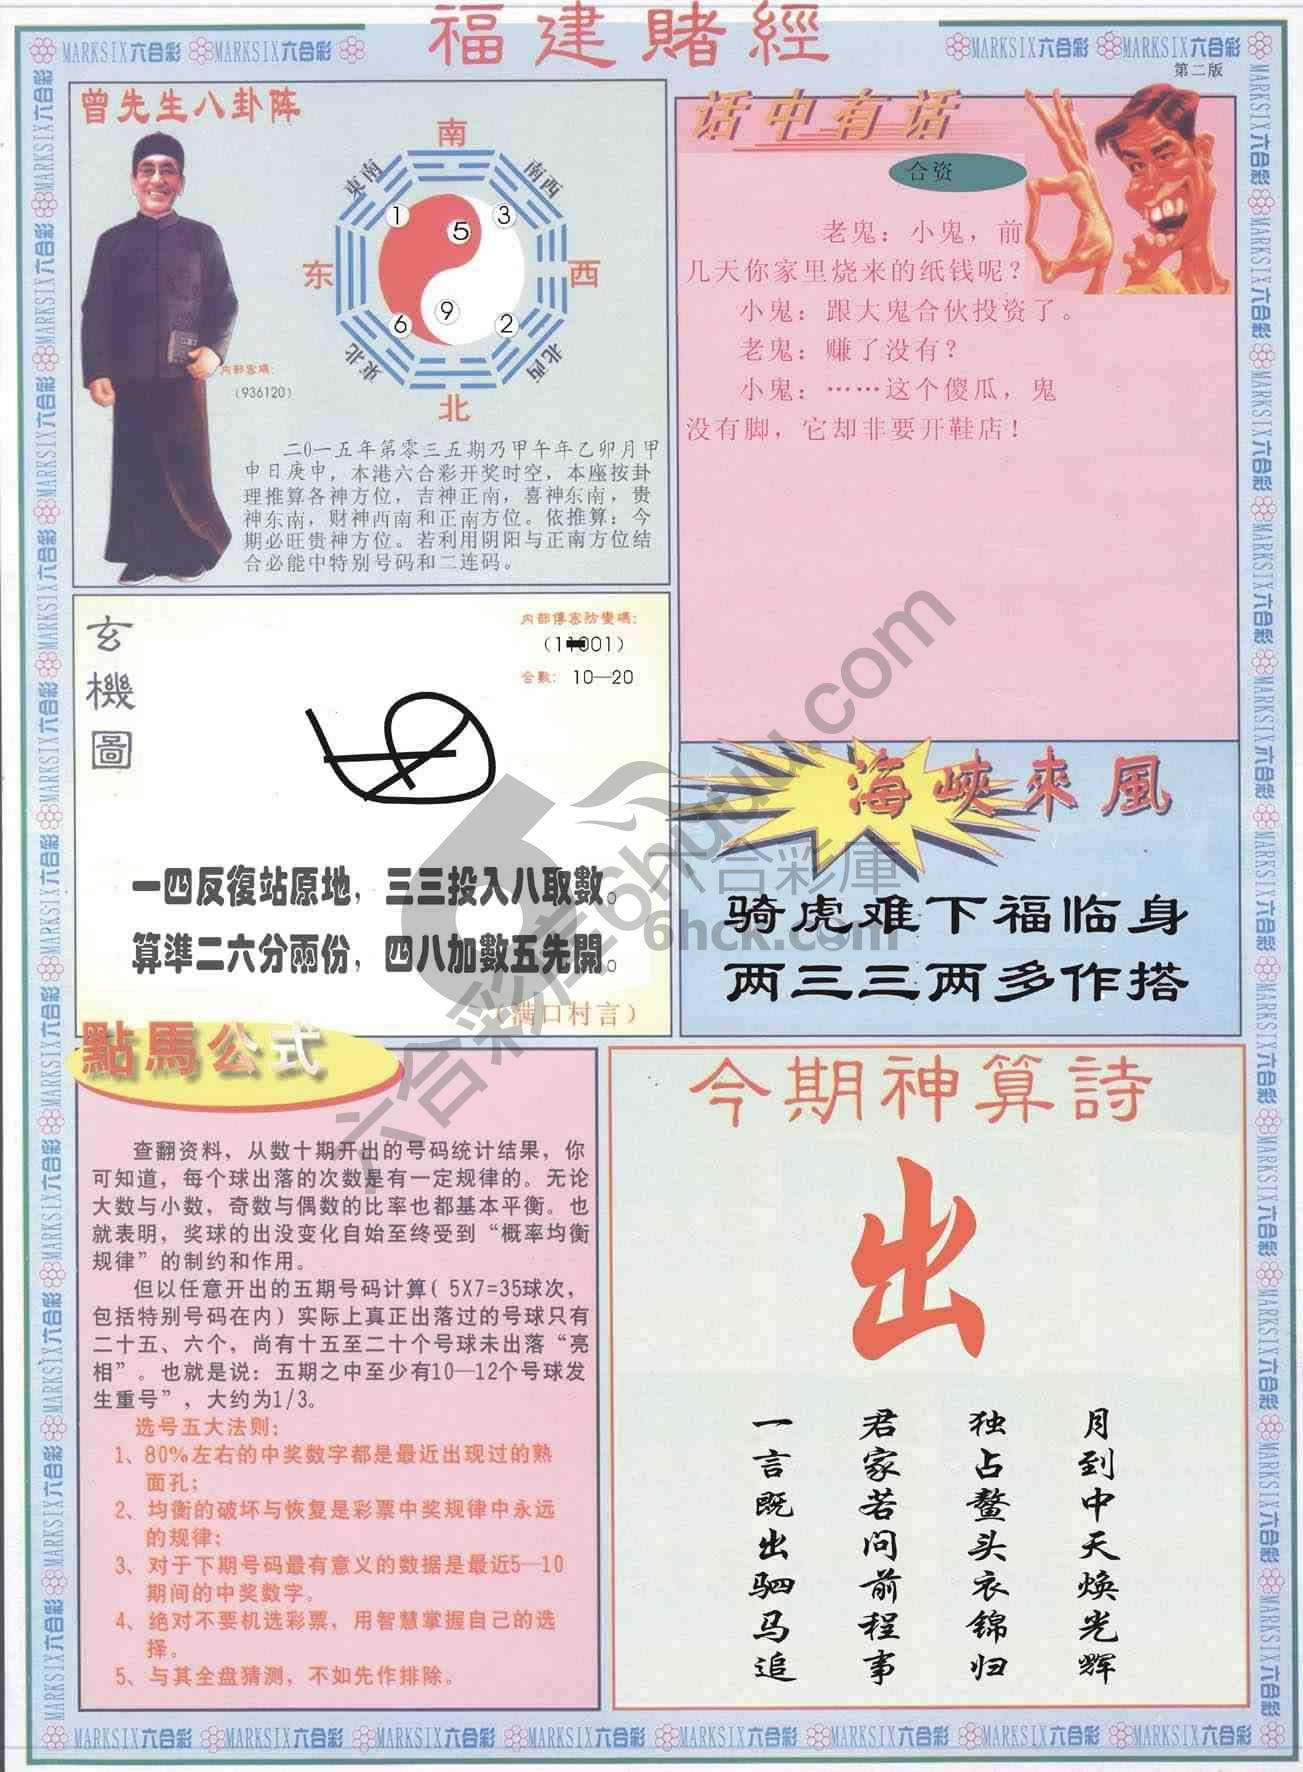 福建賭經
MARKSIX六合彩 MARKSIX六合彩
MARKSIX六合彩 MARKSIX六合彩
第二版
曾先生八卦阵
南
東南
南西
1
3
5
东
西
6
9
2
東北
北西
北
内部密碼：
（936120）
二0一五年第零三五期乃甲午年乙卯月甲
申日庚申，本港六合彩开奖时空，本座按卦
理推算各神方位，吉神正南，喜神东南，贵
神东南，财神西南和正南方位。依推算：今
期必旺贵神方位。若利用阴阳与正南方位结
合必能中特别号码和二连码。
话中有话
合资
老鬼：小鬼，前
几天你家里烧来的纸钱呢？
小鬼：跟大鬼合伙投资了。
老鬼：赚了没有？
小鬼：……这个傻瓜，鬼
没有脚，它却非要开鞋店！
玄機圖
内部傳密防變碼：
合數：10—20
一四反復站原地，三三投入八取數。
算準二六分兩份，四八加數五先開。
（满口村言）
海峽來風
骑虎难下福临身
两三三两多作搭
點馬公式
查翻资料，从数十期开出的号码统计结果，你
可知道，每个球出落的次数是有一定规律的。无论
大数与小数，奇数与偶数的比率也都基本平衡。也
就表明，奖球的出没变化自始至终受到“概率均衡
规律”的制约和作用。
但以任意开出的五期号码计算（5X7=35球次，
包括特别号码在内）实际上真正出落过的号球只有
二十五、六个，尚有十五至二十个号球未出落“亮
相”。也就是说：五期之中至少有10—12个号球发
生重号”，大约为1/3。
选号五大法则：
1、80%左右的中奖数字都是最近出现过的熟
面孔；
2、均衡的破坏与恢复是彩票中奖规律中永远
的规律；
3、对于下期号码最有意义的数据是最近5—10
期间的中奖数字。
4、绝对不要机选彩票，用智慧掌握自己的选
择。
5、与其全盘猜测，不如先作排除。
今期神算詩
出
月到中天焕光辉
独占鳌头衣锦归
君家若问前程事
一言既出驷马追
六合彩庫
6hck.com
六合彩库6huuu.com
MARKSIX六合彩 MARKSIX六合彩 MARKSIX六合彩 MARKSIX六合彩 MARKSIX六合彩 MARKSIX六合彩 MARKSIX六合彩 MARKSIX六合彩